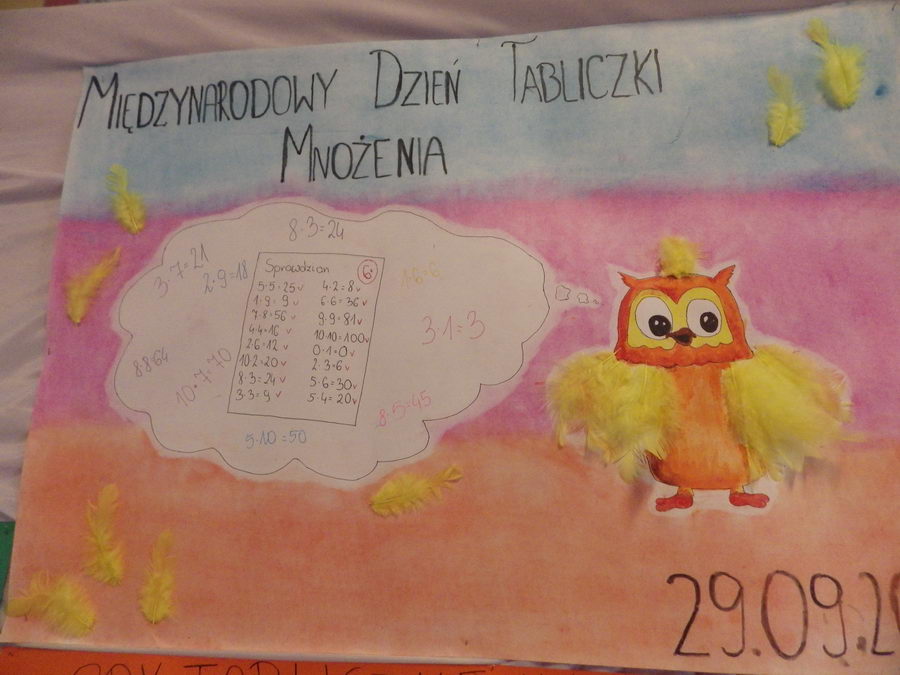 MIĘDZYNARODOWY DZIEŃ TABLICZKI
MNOŻENIA
8·3=24
3·7=21
2·9=18
1·6=6
3·1=3
8·8=64
10·7=70
8·5=45
5·10=50
Sprawdzian 6
5·5=25 v
1·9=9 v
7·8=56 v
4·4=16 v
2·6=12 v
10·2=20 v
8·3=24 v
3·3=9 v
4·2=8 v
6·6=36 v
9·9=81 v
10·10=100 v
0·1=0 v
2·3=6 v
5·6=30 v
5·4=20 v
29.09.2